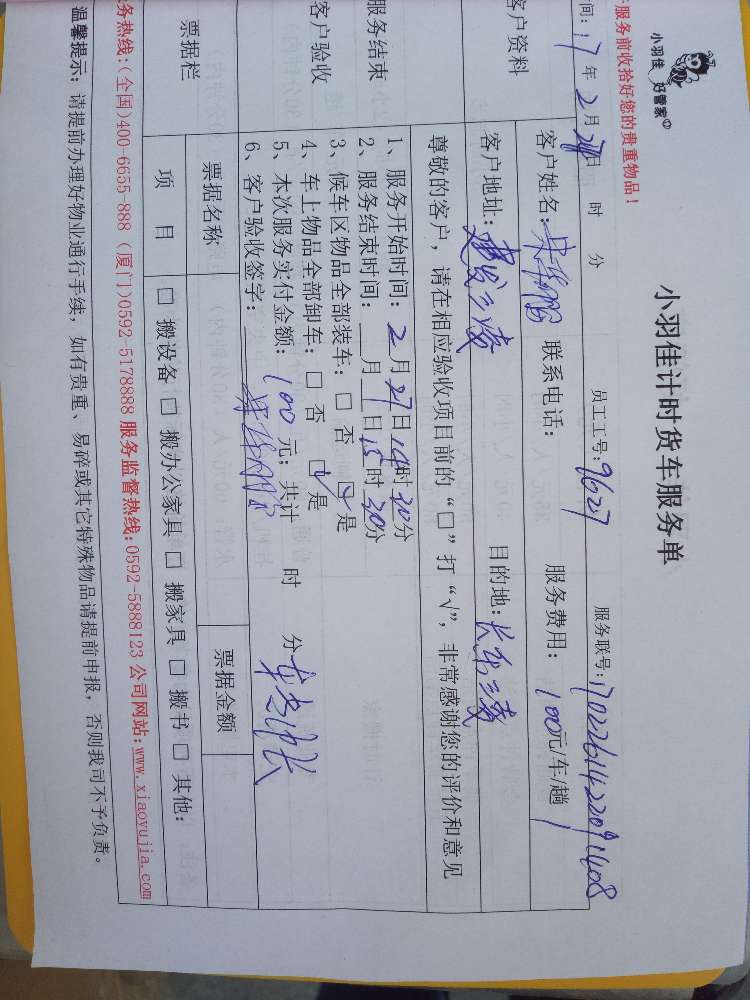 小羽佳 好管家
小羽佳计时货车服务单
服务前收拾好您的贵重物品！
间：17年2月27日 时 分 员工工号：9627 服务联号：1702261422091408
客户资料
客户姓名： 联系电话： 服务费用：100元/车/趟
客户地址：建发 目的地：
尊敬的客户，请在相应验收项目前的“□”打“√”，非常感谢您的评价和意见
服务结束
客户验收
1、服务开始时间：2月27日14时30分
2、服务结束时间： 月 日15时30分
3、候车区物品全部装车：□ 否 ☑ 是
4、车上物品全部卸车：□ 否 ☑ 是
5、本次服务实付金额：100元；共计 时 分
6、客户验收签字：
票据栏 票据名称 票据金额
项 目 □ 搬设备 □ 搬办公家具 □ 搬家具 □ 搬书 □ 其他：
务热线：(全国)400-6655-888 (厦门)0592-5178888 服务监督热线：0592-5888123 公司网站：www.xiaoyujia.com
温馨提示：请提前办理好物业通行手续，如有贵重、易碎或其它特殊物品请提前申报，否则我司不予负责。